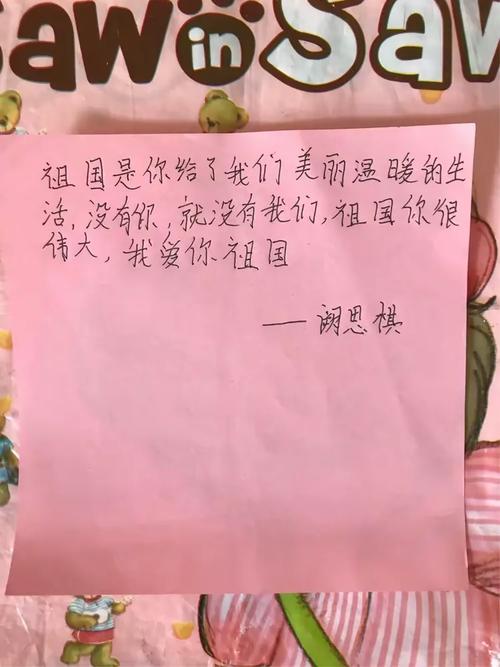 aw in Saw
祖国是你给了我们美丽温暖的生
活，没有你，就没有我们，祖国你很
伟大，我爱你祖国
——阙思棋